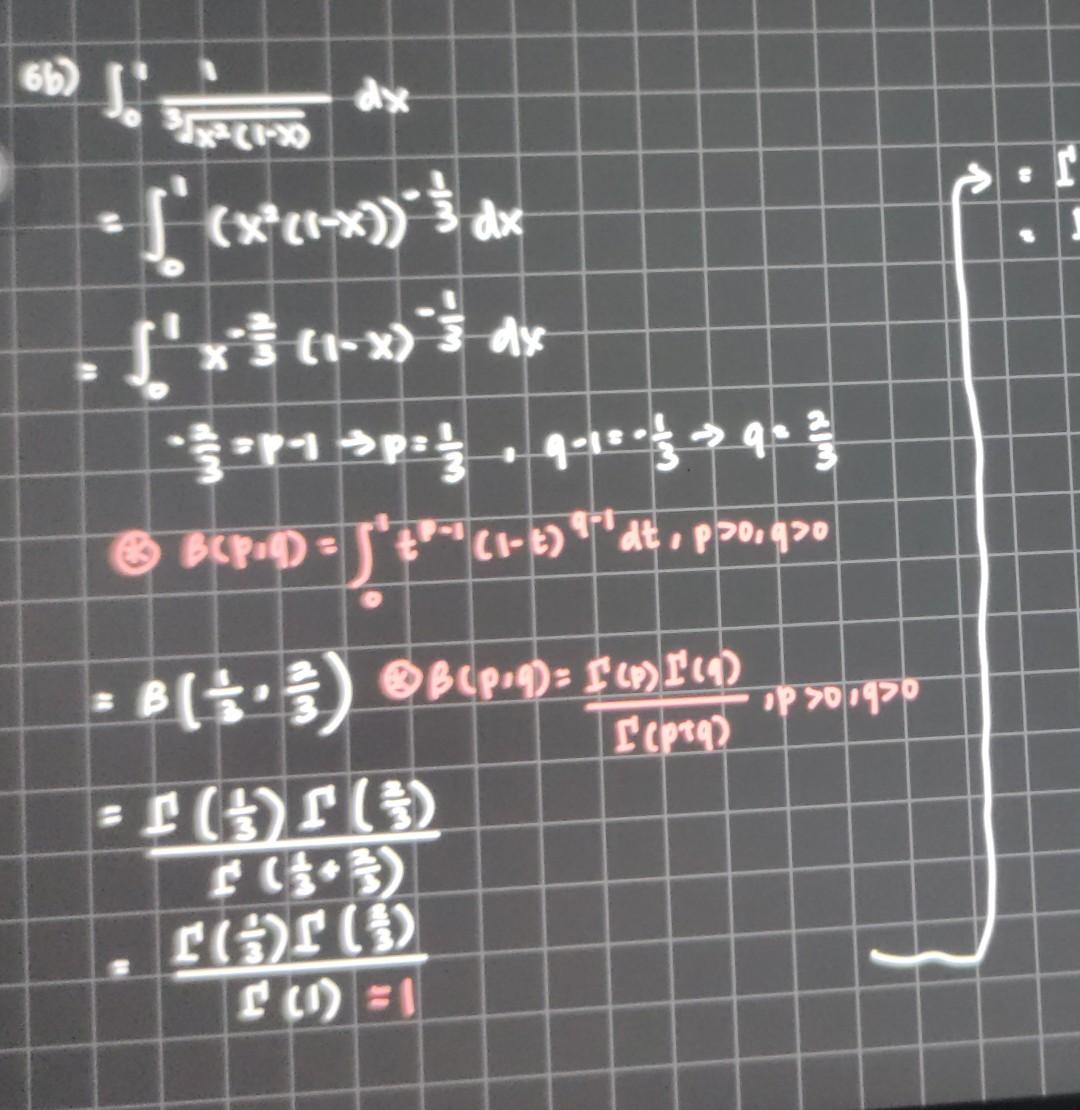 6b) ∫₀¹ 1/∛(x²(1-x)) dx
= ∫₀¹ (x²(1-x))^(-1/3) dx
= ∫₀¹ x^(-2/3) (1-x)^(-1/3) dx
-2/3 = p-1 → p = 1/3 , q-1 = -1/3 → q = 2/3
⊛ B(p,q) = ∫₀¹ t^(p-1) (1-t)^(q-1) dt, p>0, q>0
= B(1/3, 2/3) ⊛ B(p,q) = Γ(p)Γ(q)/Γ(p+q), p>0, q>0
= Γ(1/3) Γ(2/3)/Γ(1/3+2/3)
= Γ(1/3)Γ(2/3)/Γ(1) = 1
→ = Γ
=